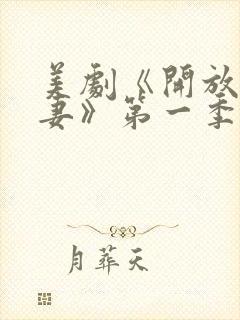 美劇《開放
妻》第一季
月葬天